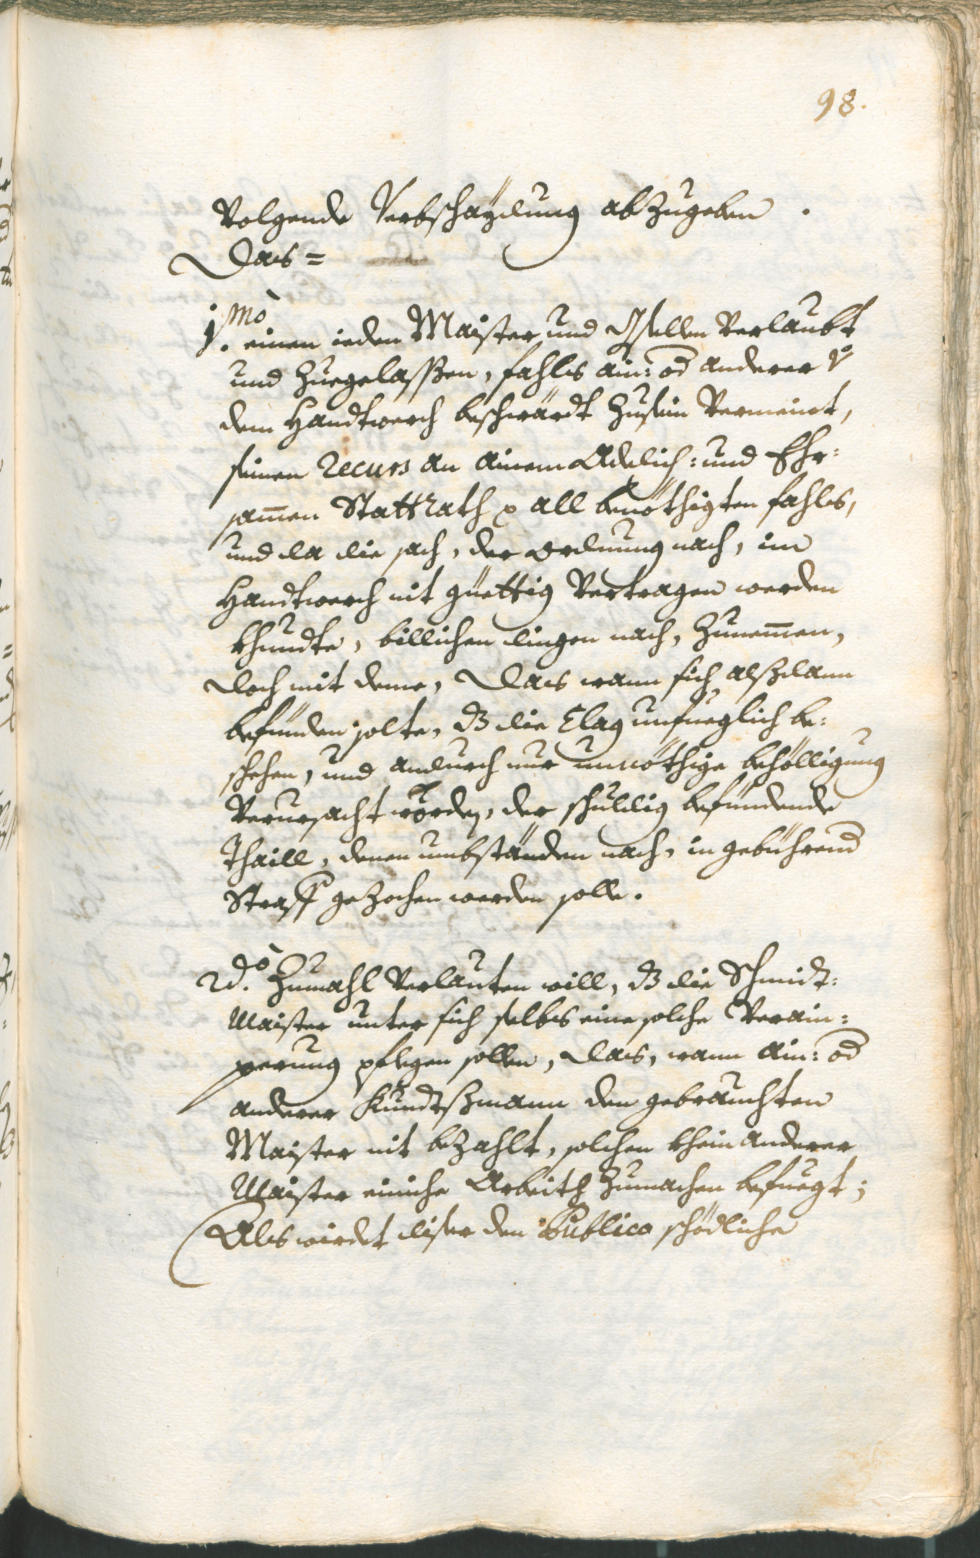 98.
Volgende Verbschaydung abzugeben.
Das=
1.mo einen ieden Maister und Gsellen verlaubt
und zuegelassen, fahls ain: od anderer v
dem Handtwerch beschwärdt zusein vermeint,
seinen Recurs an ainem Adelich: und Ehr:
samen StattRath p all benöthigten fahls,
und da die sach, der ordnung nach, im
Handtwerch nit güettig vertragen werden
khundte, billichen dingen nach, zunemen,
doch mit deme, das wann sich alssdann
befunden solte, dz die Clag unfueglich be:
schehen, und andurch nur unnöthige behölligung
verursacht worden, der schuldig befundende
Thaill, denen umbständen nach, in gebührend
Straff gezochen werden solle.
2do. Zumahl verlauten will, dz die Schmidt:
Maister unter sich selbs eine solche Verain:
gerung pflegen sollen, das, wann ain: od
anderer Kundtsmann den gebrauchten
Maister nit bezahlt, solchen khein anderer
Maister einiche Arbeith zumachen befuegt;
Als wirdet diser den Publico schödliche